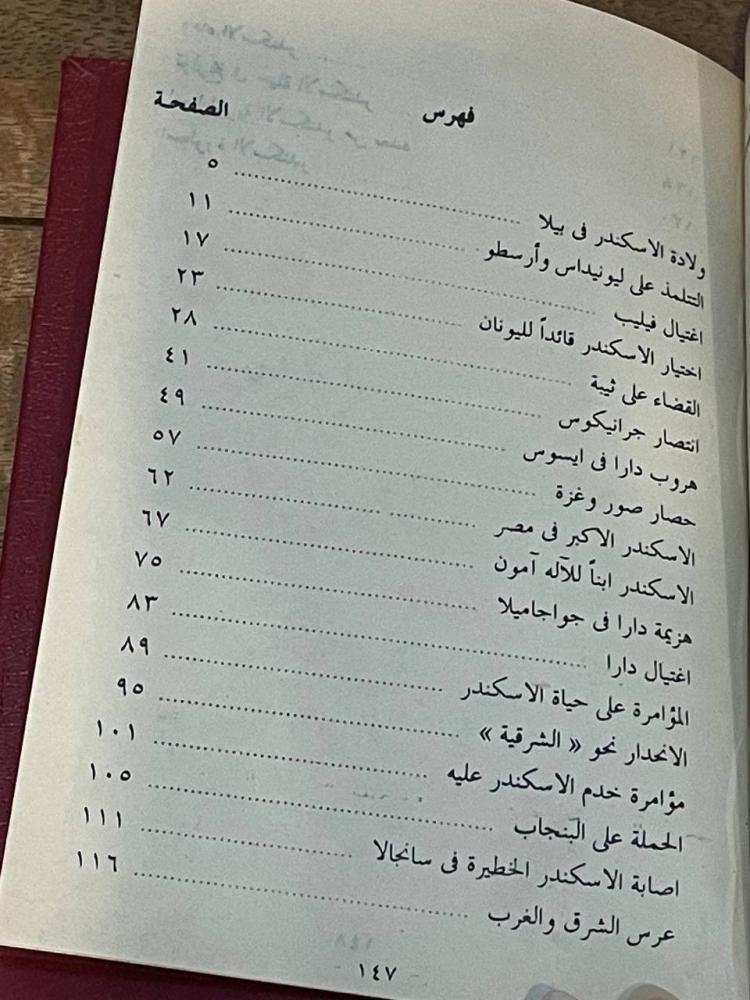 فهرس
الصفحة
ولادة الاسكندر فى بيلا ........ ٥
التتلمذ على ليونيداس وأرسطو ........ ١١
اغتيال فيليب ........ ١٧
اختيار الاسكندر قائداً لليونان ........ ٢٣
القضاء على ثيبة ........ ٢٨
انتصار جرانيكوس ........ ٤١
هروب دارا فى ايسوس ........ ٤٩
حصار صور وغزة ........ ٥٧
الاسكندر الاكبر فى مصر ........ ٦٢
الاسكندر ابناً للآله آمون ........ ٦٧
هزيمة دارا فى جواجاميلا ........ ٧٥
اغتيال دارا ........ ٨٣
المؤامرة على حياة الاسكندر ........ ٨٩
الانحدار نحو « الشرقية » ........ ٩٥
مؤامرة خدم الاسكندر عليه ........ ١٠١
الحملة على البنجاب ........ ١٠٥
اصابة الاسكندر الخطيرة فى سانجالا ........ ١١١
عرس الشرق والغرب ........ ١١٦
١٤٧